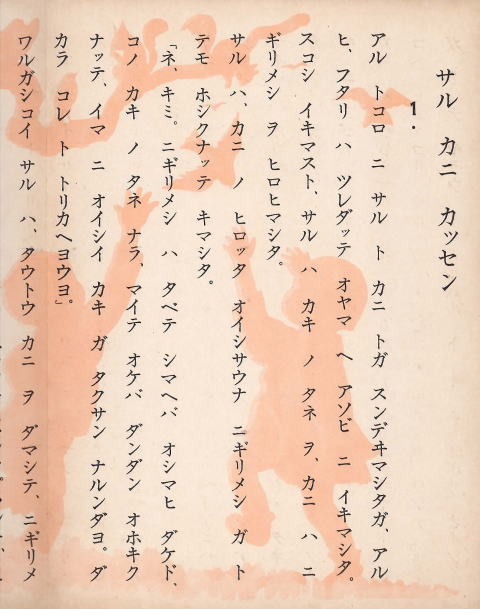 サル カニ カッセン
1.
アル トコロ ニ サル ト カニ トガ スンデヰマシタガ、アル
ヒ、フタリ ハ ツレダッテ オヤマ ヘ アソビ ニ イキマシタ。
スコシ イキマスト、サル ハ カキ ノ タネ ヲ、カニ ハ ニ
ギリメシ ヲ ヒロヒマシタ。
サル ハ、カニ ノ ヒロッタ オイシサウナ ニギリメシ ガ ト
テモ ホシクナッテ キマシタ。
「ネ、キミ。ニギリメシ ハ タベテ シマヘバ オシマヒ ダケド、
コノ カキ ノ タネ ナラ、マイテ オケバ ダンダン オホキク
ナッテ、イマ ニ オイシイ カキ ガ タクサン ナルンダヨ。ダ
カラ コレ ト トリカヘヨウヨ。」
ワルガシコイ サル ハ、タウトウ カニ ヲ ダマシテ、ニギリメ